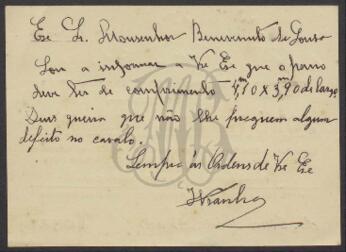 Exe Sr. Monsenhor Benevenuto de Souza
Sou a informar a Va Exe que o panno
deve ter de comprimento 4,m10 x 3,m90 de largo.
Deus queira que não lhe preguem algum
defeito no cavalo.
Sempre às Ordens de Va Exe